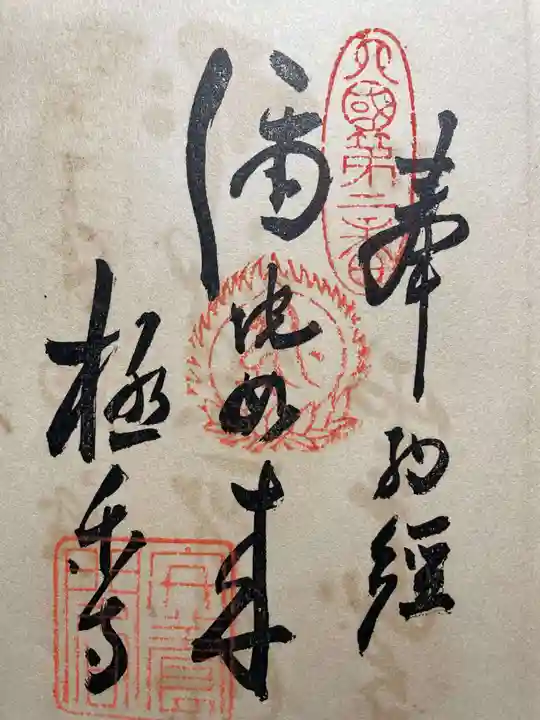 四國第二番
奉納經
彌陀如来
極楽寺